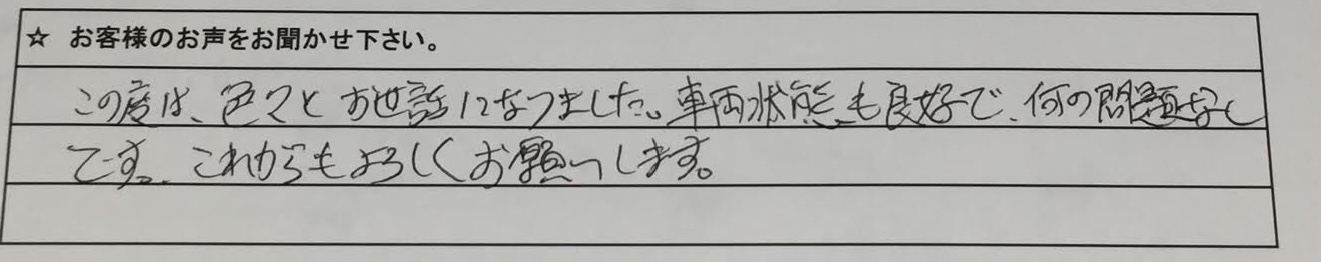 ☆ お客様のお声をお聞かせ下さい。
この度は、色々とお世話になりました。車両状態も良好で、何の問題なし
です。これからもよろしくお願いします。